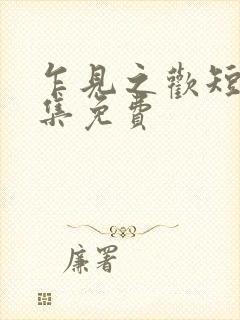 乍見之歡短
集免費
廉署